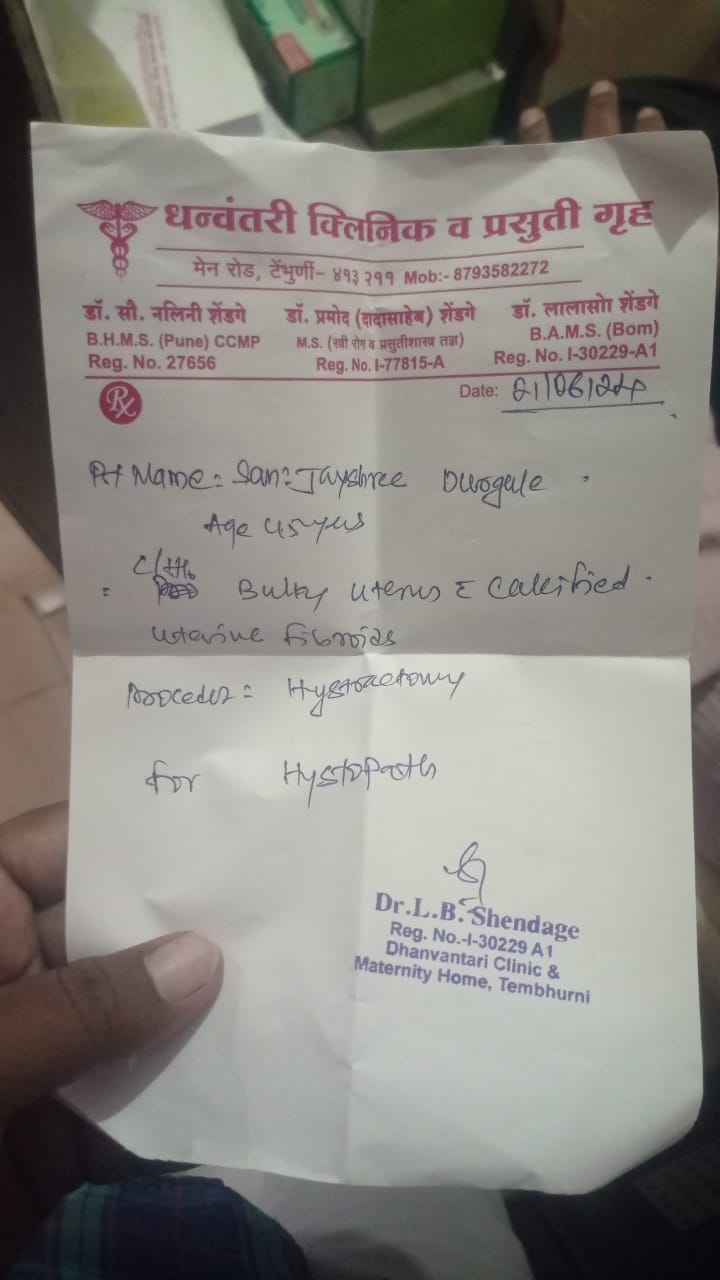 धन्वंतरी क्लिनिक व प्रसुती गृह
मेन रोड, टेंभुर्णी- ४१३ २११ Mob:- 8793582272
डॉ. सौ. नलिनी शेंडगे
B.H.M.S. (Pune) CCMP
Reg. No. 27656
डॉ. प्रमोद (दादासाहेब) शेंडगे
M.S. (स्त्री रोग व प्रसुतीशास्त्र तज्ञ)
Reg. No. I-77815-A
डॉ. लालासो शेंडगे
B.A.M.S. (Bom)
Reg. No. I-30229-A1
Rx
Date: 21/06/24
Pt Name: Jayshree
Age 45 yrs
Bulky uterus c̄ calcified
uterine fibroids
Hystrectomy
for Hystopath
Dr.L.B. Shendage
Reg. No.-I-30229 A1
Dhanvantari Clinic &
Maternity Home, Tembhurni